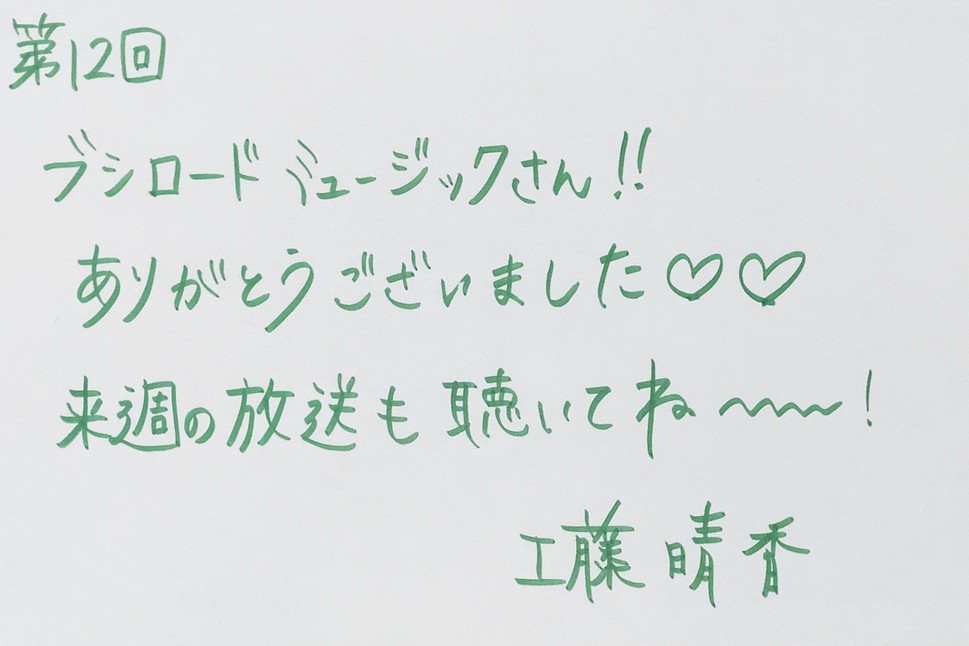 第12回
ブシロードミュージックさん!!
ありがとうございました♡♡
来週の放送も聴いてね〜〜〜!
工藤晴香